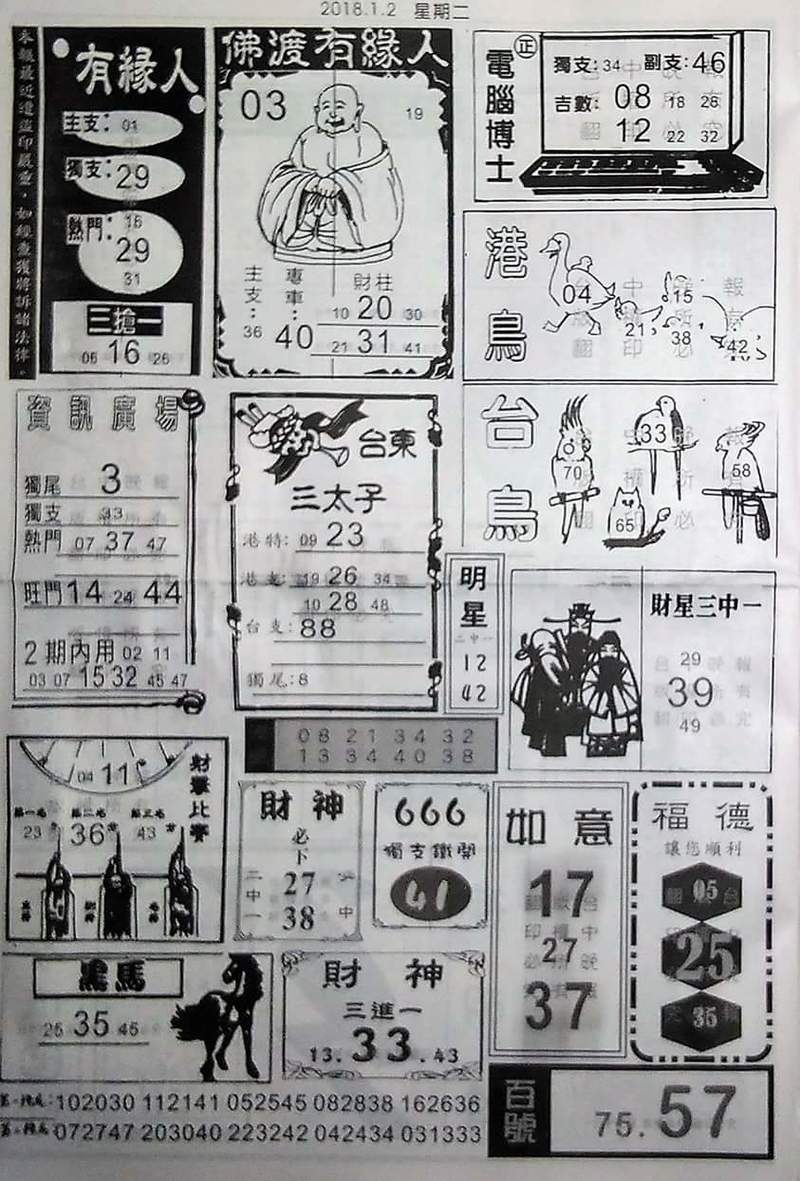 2018.1.2 星期二
參錄最近遭盜印嚴重，如經查獲將訴諸法律。
有緣人
主支：01
獨支：29
熱門：16
29
31
三搶一
06 16 26
佛渡有緣人
03 19
主支：36
專車：40
財柱
10 20 30
21 31 41
正
電腦博士
獨支：34 副支：46
吉數：08 18 28
12 22 32
港鳥
04 21 15 38 42
台鳥
70 33 65 58
資訊廣場
獨尾 3
獨支 33
熱門 07 37 47
旺門 14 24 44
2期內用 02 11
03 07 15 32 45 47
台東
三太子
港特：09 23
19 26 34
10 28 48
台支：88
獨尾：8
明星
二中一
12
42
財星三中一
29
39
49
08 21 34 32
13 34 40 38
財擊比賽
04 11
第一名 第二名 第三名
23 36 43
財神
必下
二中一
27
38
666
獨支鐵開
41
如意
17
27
37
福德
讓您順利
05
25
35
黑馬
25 35 45
財神
三進一
13.33.43
102030 112141 052545 082838 162636
072747 203040 223242 042434 031333
百號
75.57